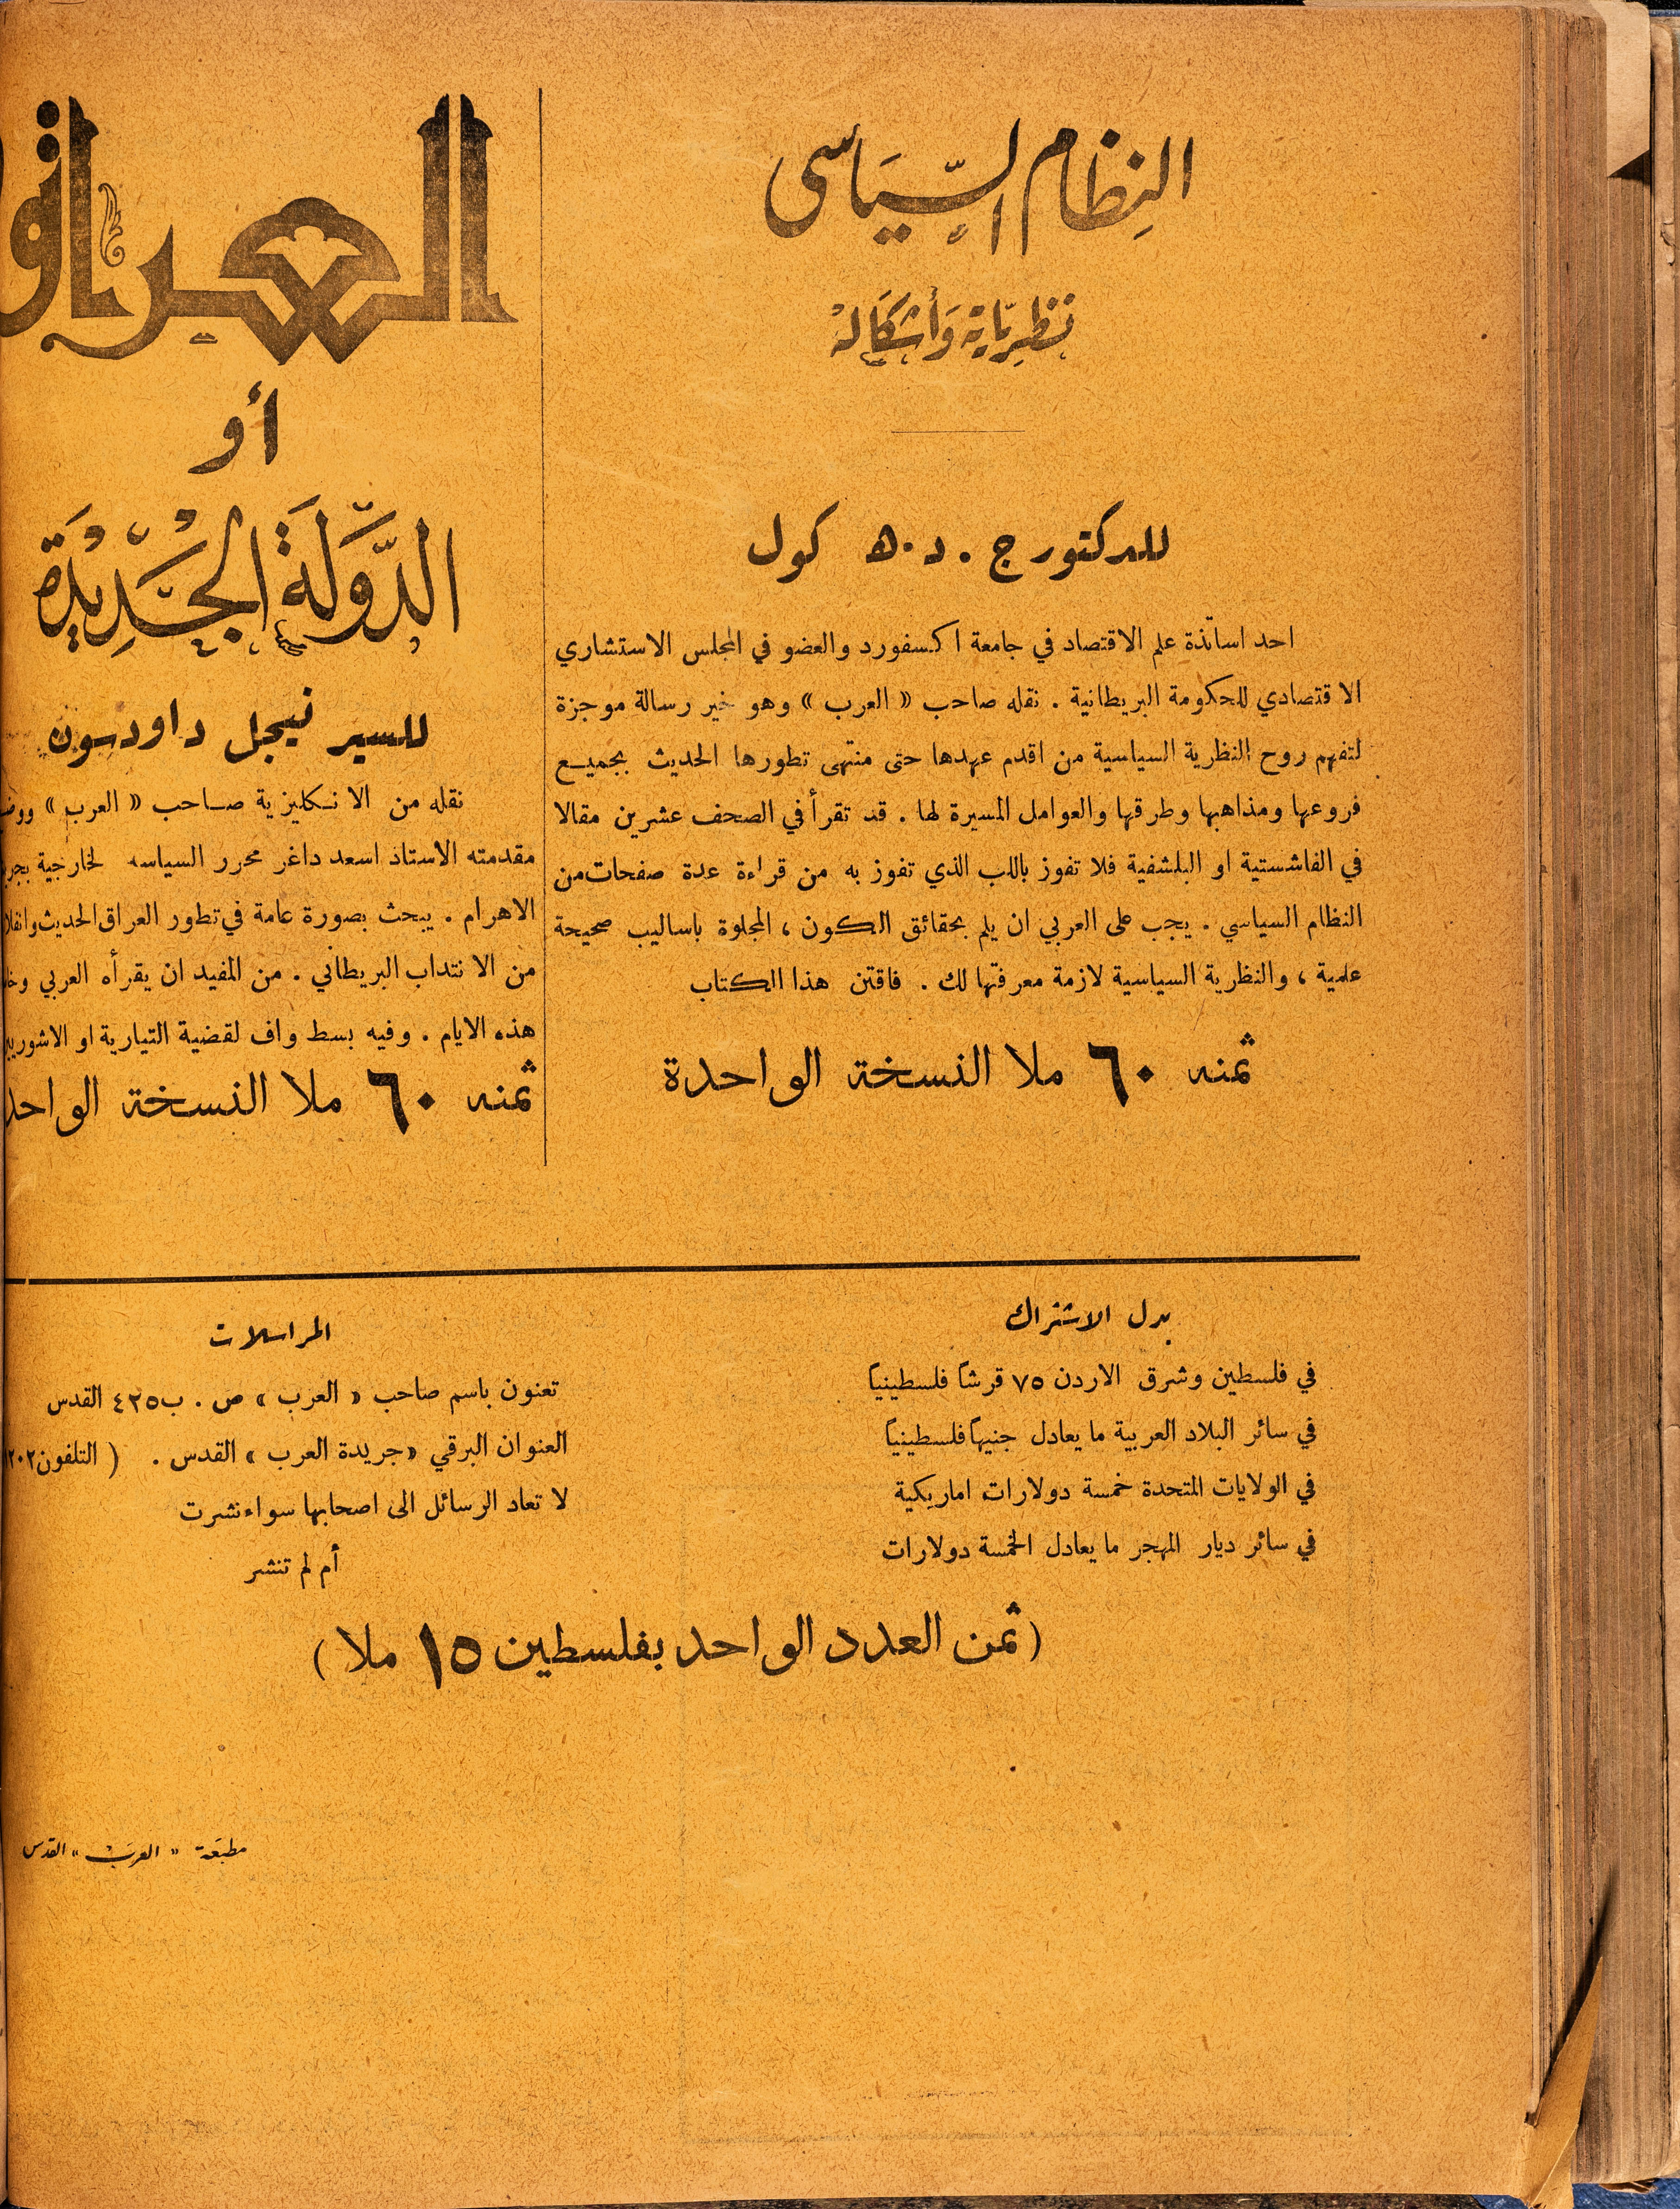 النظام السياسى
نظرياته وأشكاله
للدكتور ج . د . ه كول
احد اساتذة علم الاقتصاد في جامعة اكسفورد والعضو في المجلس الاستشاري
الاقتصادي للحكومة البريطانية . نقله صاحب « العرب » وهو خير رسالة موجزة
لتفهم روح النظرية السياسية من اقدم عهدها حتى منتهى تطورها الحديث بجميع
فروعها ومذاهبها وطرقها والعوامل المسيرة لها . قد تقرأ في الصحف عشرين مقالا
في الفاشستية او البلشفية فلا تفوز باللب الذي تفوز به من قراءة عدة صفحات من
النظام السياسي . يجب على العربي ان يلم بحقائق الكون ، المجلوة باساليب صحيحة
علمية ، والنظرية السياسية لازمة معرفتها لك . فاقتن هذا الكتاب
ثمنه ٦٠ ملا النسخة الواحدة
العراق
أو
الدولة الجديدة
للسير نيجل داودسون
نقله من الانكليزية صاحب « العرب »
مقدمته الاستاذ اسعد داغر محرر السياسه لخارجية
الاهرام . يبحث بصورة عامة في تطور العراق الحديث
من الانتداب البريطاني . من المفيد ان يقرأه العربي
هذه الايام . وفيه بسط واف لقضية التيارية او
ثمنه ٦٠ ملا النسخة
بدل الاشتراك
في فلسطين وشرق الاردن ٧٥ قرشاً فلسطينياً
في سائر البلاد العربية ما يعادل جنيهاً فلسطينياً
في الولايات المتحدة خمسة دولارات اماريكية
في سائر ديار المهجر ما يعادل الخمسة دولارات
المراسلات
تعنون باسم صاحب « العرب » ص . ب ٤٢٥ القدس
العنوان البرقي « جريدة العرب » القدس . ( التلفون
لا تعاد الرسائل الى اصحابها سواء نشرت
أم لم تنشر
( ثمن العدد الواحد بفلسطين ١٥ ملا )
مطبعة « العرب » القدس